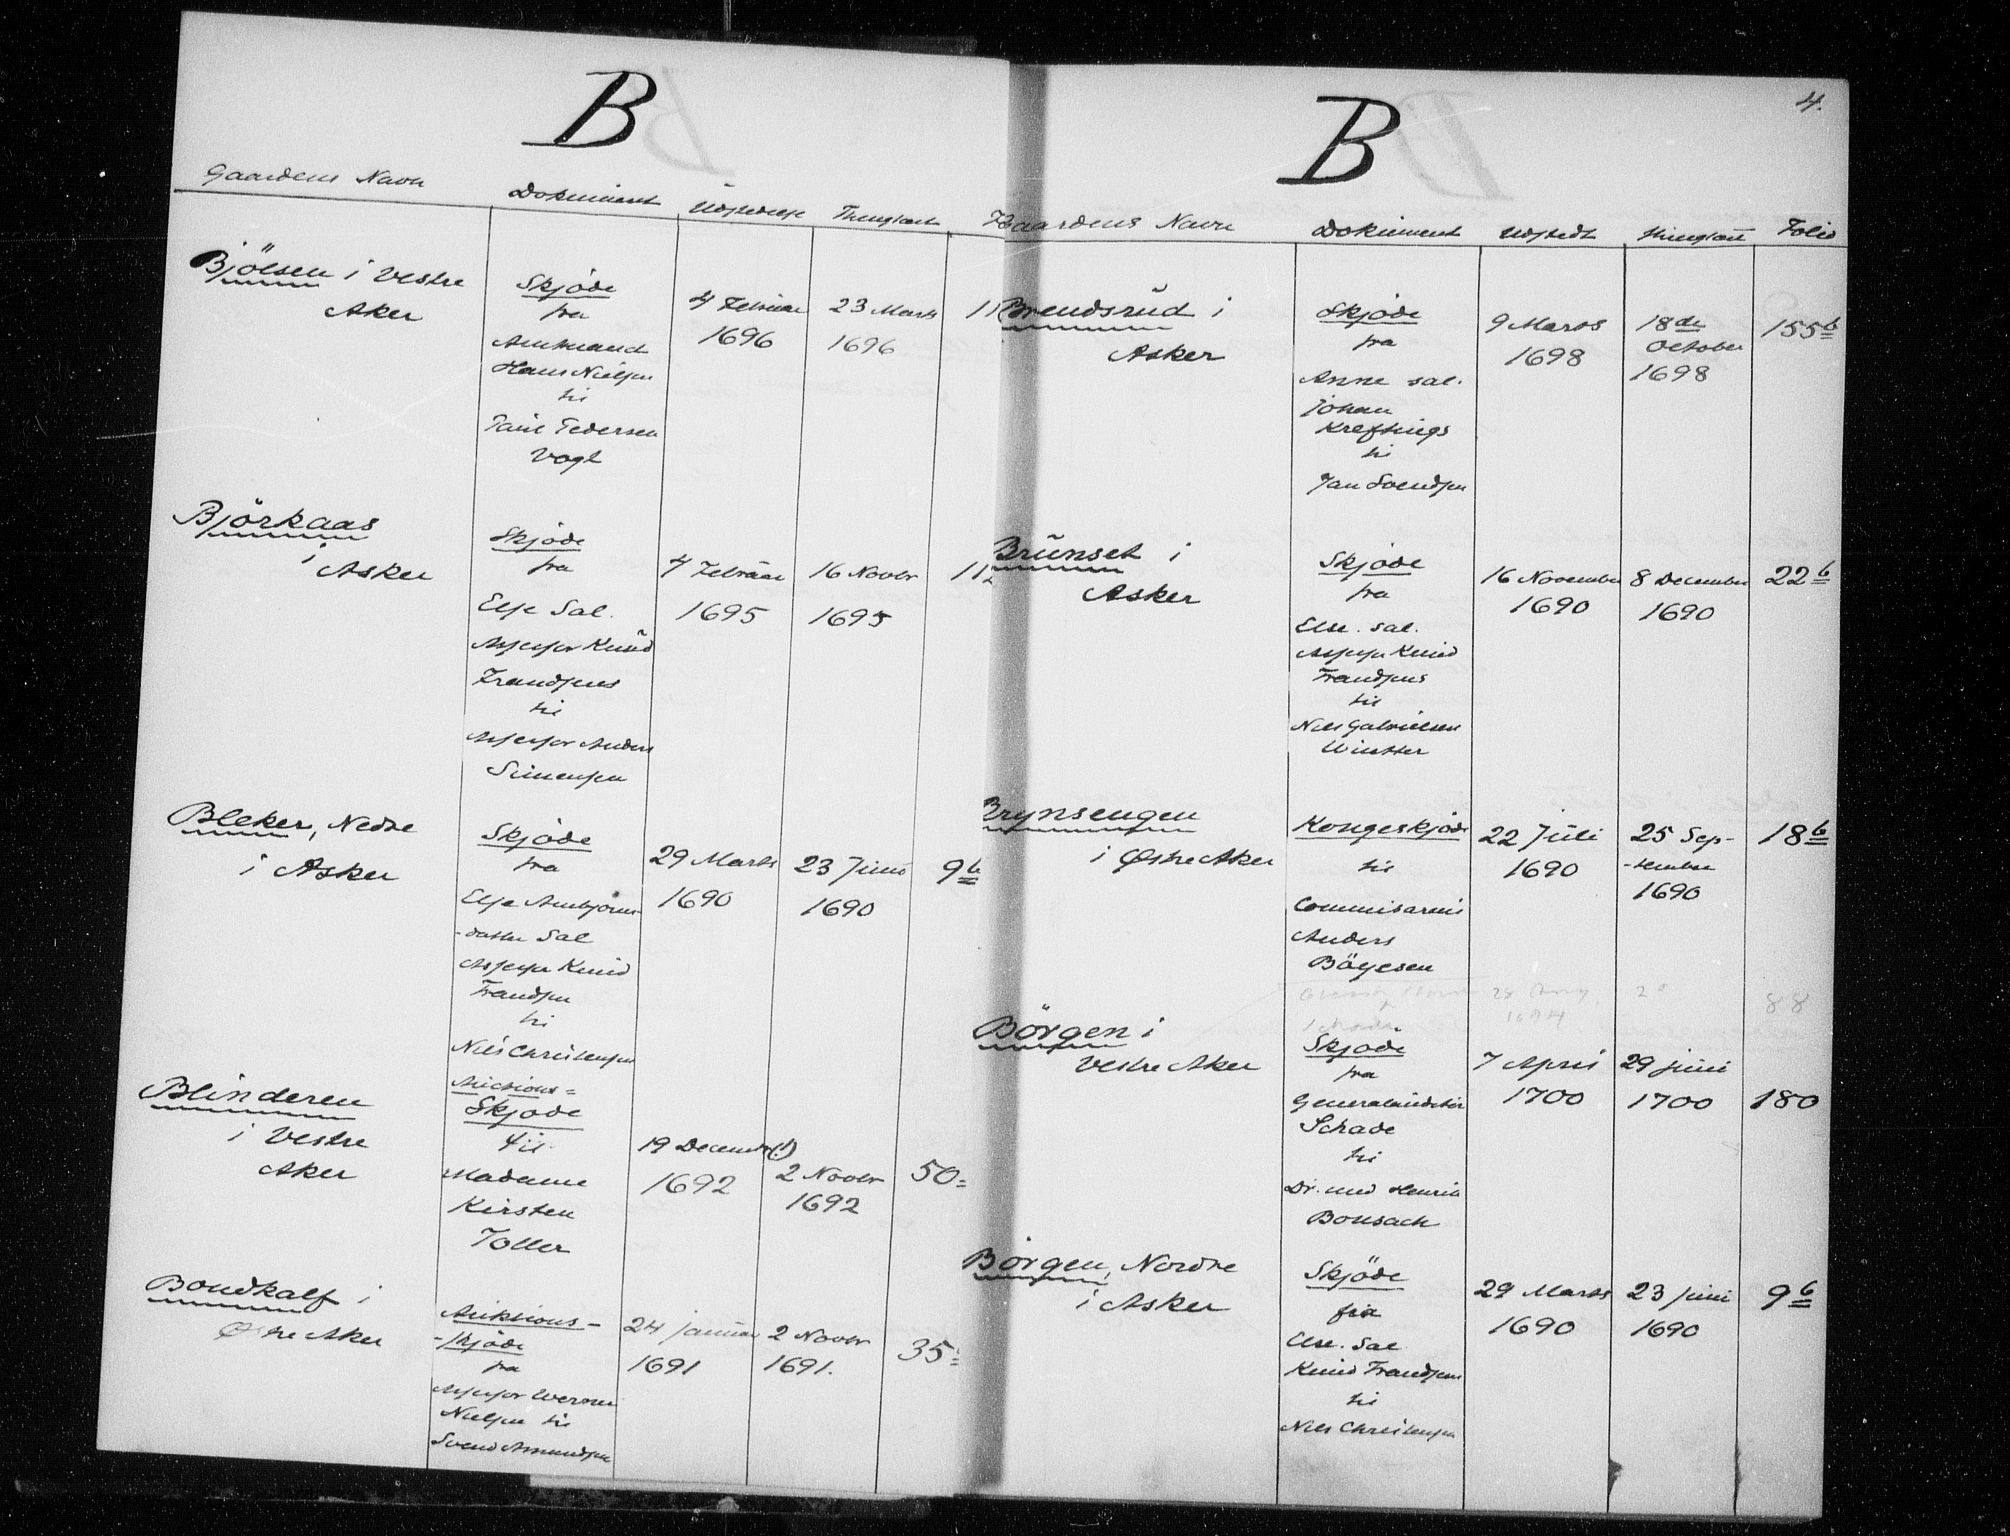 B
Gaardens Navn Dokument Udstedelse Thinglæst
Bjölsen i Vestre
Aker
Skjöde
fra
Amtmand
Hans Nielsen
til
Paul Pedersen
Vogt
4 Februar
1696
23 Marts
1696
11
Björkaas
i Asker
Skjöde
fra
Else Sal.
Assessor Knud
Frandsens
til
Assessor Anders
Simensen
4 Februar
1695
16 Novbr
1695
112
Bleker, Nedre
i Asker
Skjöde
fra
Else Ambjörns-
-datter Sal
Assessor Knud
Frandsen
til
Niels Christensen
29 Marts
1690
23 Juni
1690
9b
Blinderen
i Vestre
Aker
Auctions=
Skjöde
til
Madame
Kirsten
Toller
19 December(!)
1692
2 Novbr
1692
50=
Bondkalf i
Østre Aker
Auktions-
-skjöde
fra
Assessor Werner
Nielsen til
Svend Amundsen
24 januar
1691
2 Novbr
1691.
35
4.
B
Gaardens Navn Dokument Udstedt Thinglæst Folio
Brendsrud i
Asker
Skjöde
fra
Anne sal.
Johan
Kreftings
til
Jan Svendsen
9 Marts
1698
18de
October
1698
155b
Brünset i
Asker
Skjöde
fra
Else. sal.
Assessor Knud
Frandsens
til
Niels Gabrielsen
Winther
16 November
1690
8 December
1690
22b
Brynsengen
i Østre Aker
Kongeskjöde
til
Commisarius
Anders
Böyesen
22 Juli
1690
25 Sep-
-tember
1690
18b
88
Börgen i
Vestre Aker
Skjöde
fra
Generalauditör
Schade
til
Dr. med Henrik
Bousach
7 April
1700
29 juni
1700
180
Börgen, Nordre
i Asker
Skjöde
fra
Else. Sal
Knud Frandsens
til
Niels Christensen
29 Marts
1690
23 juni
1690
9b